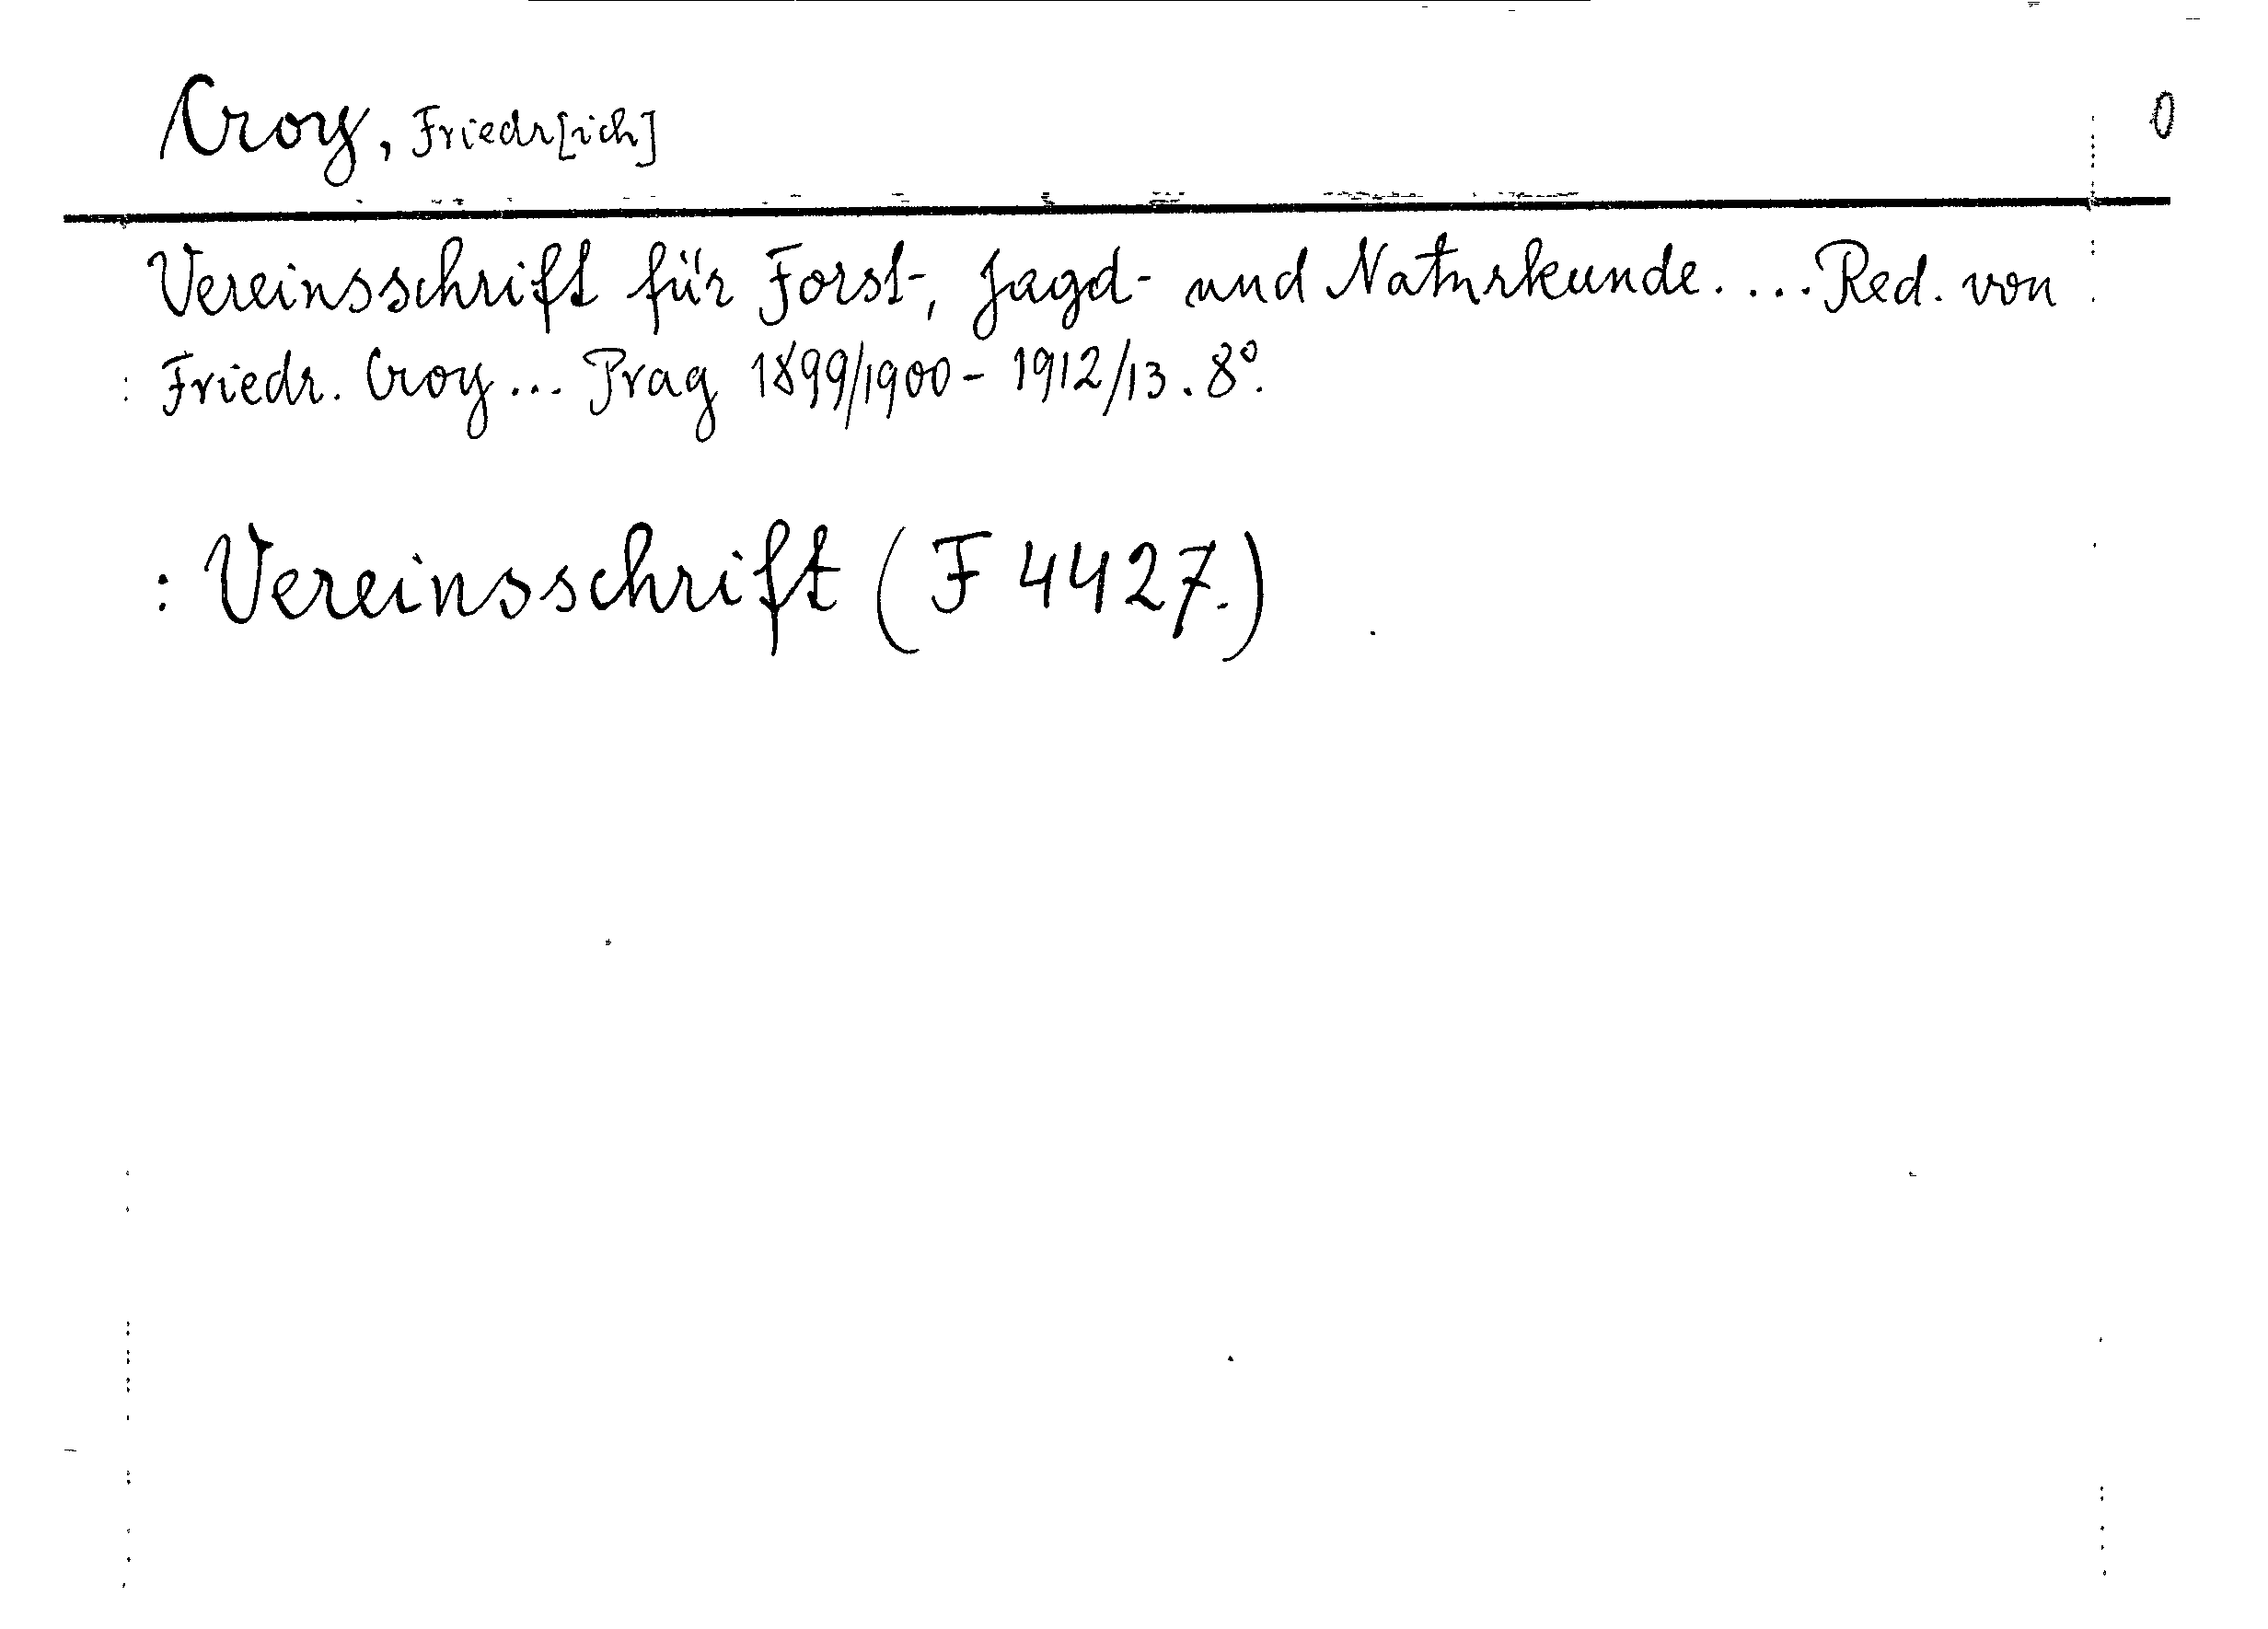 Croy, Friedr[ich] 0
Vereinsschrift für Forst-, Jagd- und Naturkunde. ... Red. von
Friedr. Croy ... Prag 1899/1900 - 1912/13. 8°.
: Vereinsschrift (F 4427.)